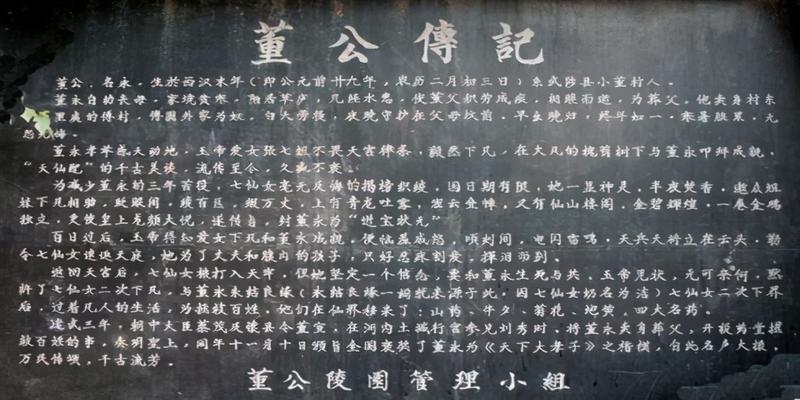 董公傳記
董公，名永，生於西汉末年（即公元前廿九年，农历二月初三日）系武陟县小董村人。
董永自幼丧母，家境贫寒，陋居草庐，几经水患，使董父积劳成疾，为葬父，他卖身村东
里庞的傅村，傅圆外家为奴，白天劳役，夜晚守护在父母坟前，早出晚归，终年如一，寒暑无
怨无悔。
董永孝举感天动地，玉帝爱女张七姐不畏天宫律条，毅然下凡，在大凡的槐荫树下与董永叩拜成親，
“天仙配”的千古美谈，流传至今，久而不衰。
为减少董永的三年苦役，七仙女毫无反悔的揭榜织绫，因日期有限，她一显神灵，半夜焚香，邀众姐
妹下凡相助，眨眼间，绫百匹，缎万丈，上有青龙吐雾，彩云金凤，又有仙山楼阁，金碧輝煌，一卷金鸡
独立，更使皇上龙颜大悦，遂传旨，封董永为“进宝狀元”
百日过后，玉帝得知爱女下凡和董永成親，便恼羞成怒，顷刻间，电闪雷鸣，天兵天将立在云头，勒
令七仙女速返天庭，她为了丈夫和腹内的孩子，只好忍痛割爱，挥泪而别。
返回天宫后，七仙女被打入天牢，但她坚定一个信念，要和董永生死与共，玉帝见状，无可奈何，默
許了七仙女二次下凡，与董永永结良缘（永结良缘一詞就来源于此，因七仙女奶名为洁）七仙女二次下界
后，过着凡人的生活，为拯救百姓，她们在仙界移来了：山药、牛夕、菊花、地黄，四大名药。
建武三年，朝中大臣蔡茂及怀县令董宣，在河内土城行宫参见刘秀时，将董永卖身葬父，开设药堂搭
救百姓的事，奏明皇上，同年十一月十日颁旨全国褒奖了董永为《天下大孝子》之楷模，自此名声大振，
万民传颂，千古流芳。
董公陵園管理小組